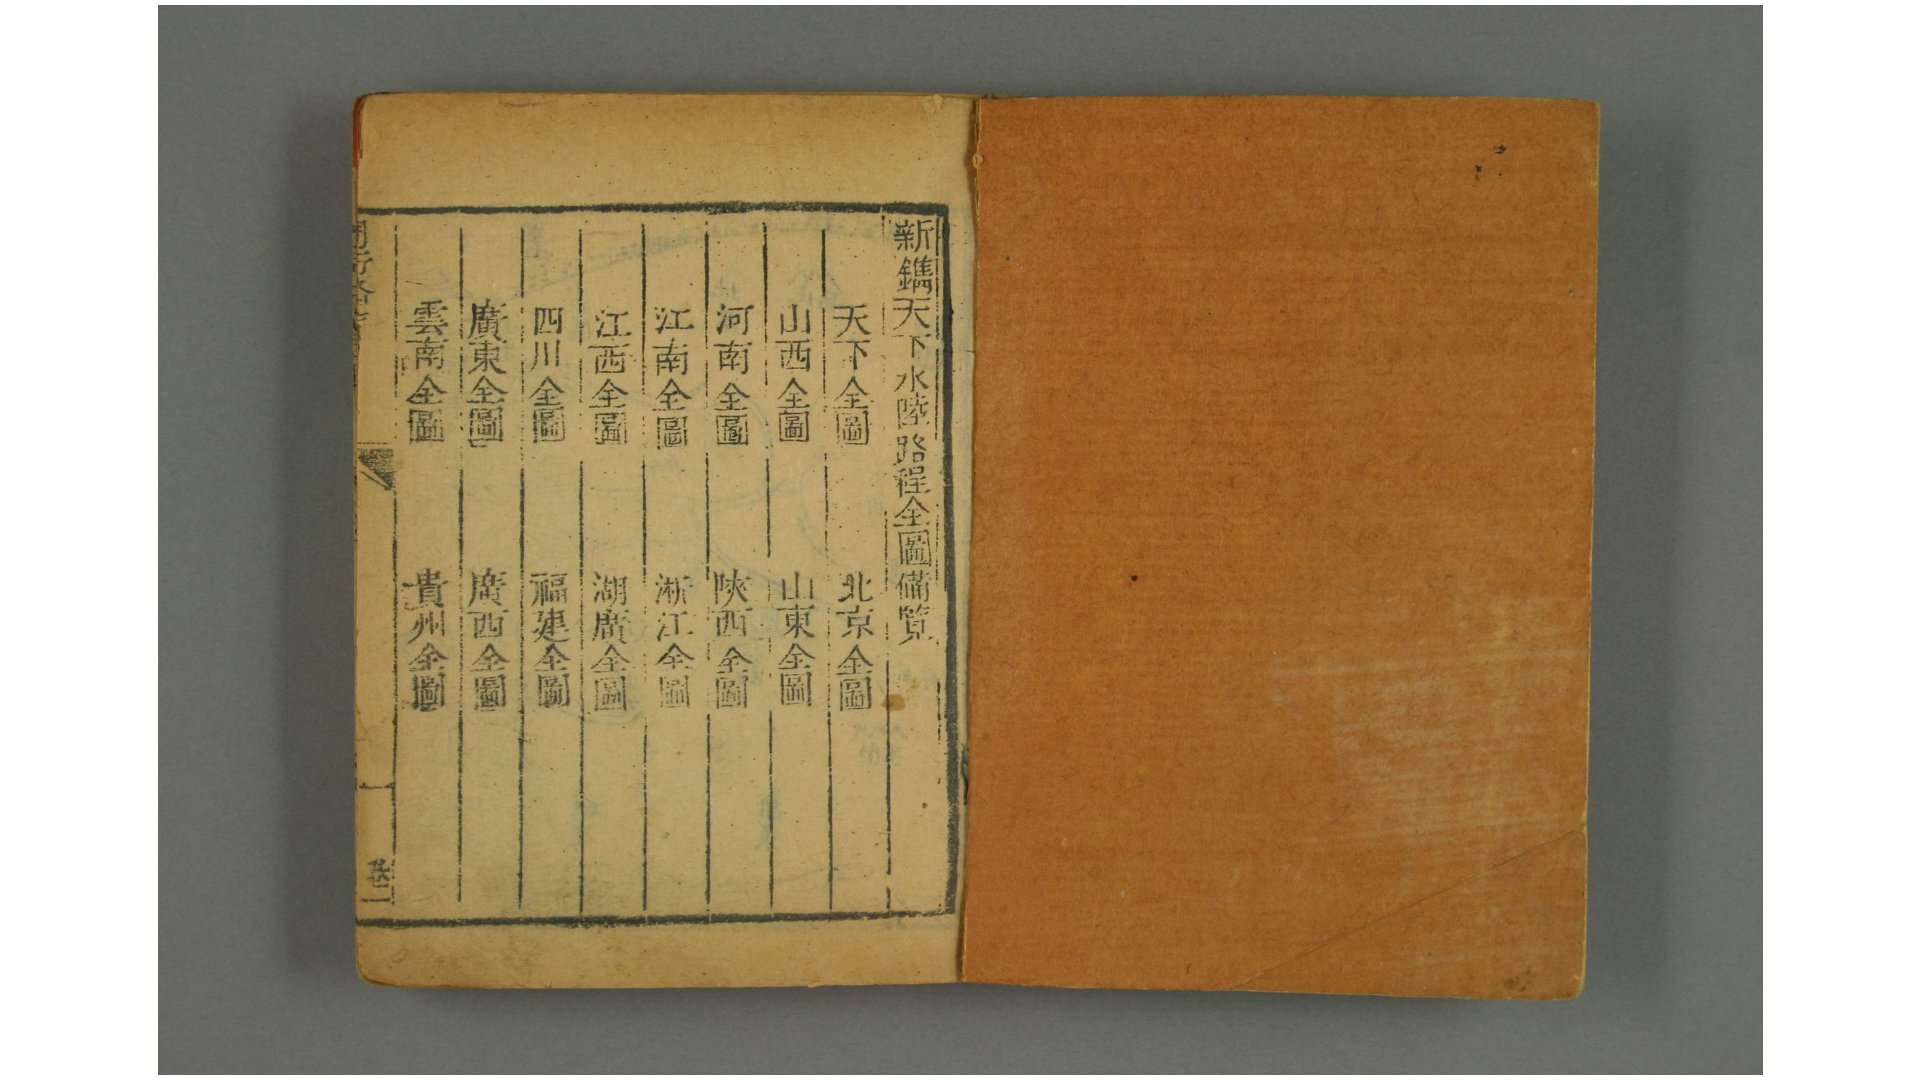 新鐫天下水陸路程全圖備覽
天下全圖 北京全圖
山西全圖 山東全圖
河南全圖 陝西全圖
江南全圖 浙江全圖
江西全圖 湖廣全圖
四川全圖 福建全圖
廣東全圖 廣西全圖
雲南全圖 貴州全圖